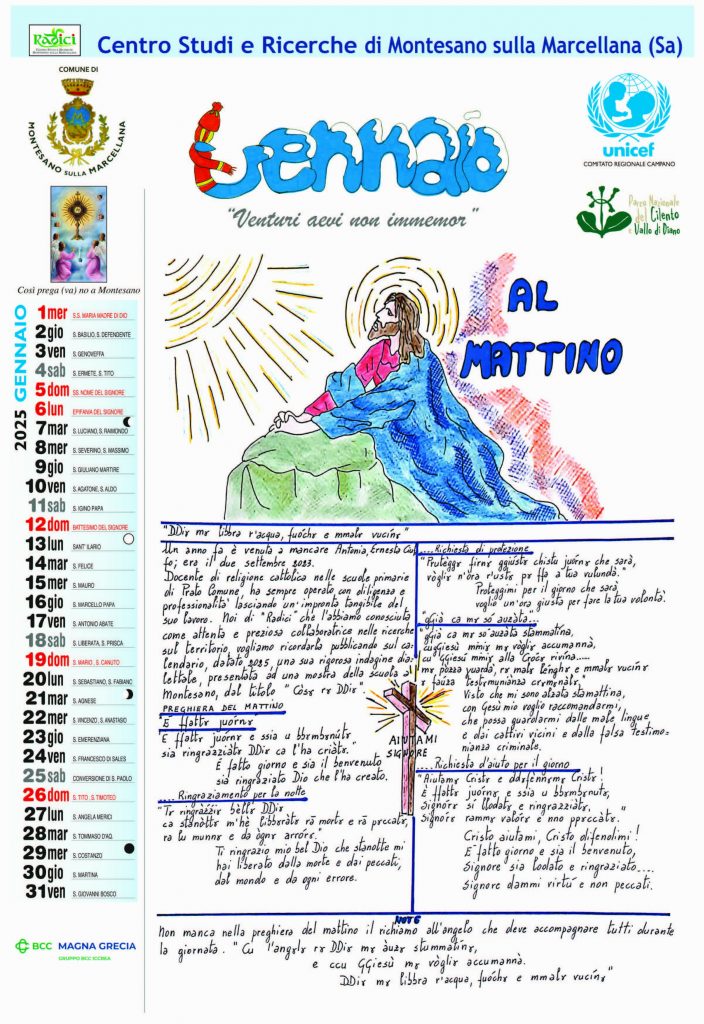 Radici
Centro Studi e Ricerche di Montesano sulla Marcellana (Sa)
COMUNE DI
MONTESANO SULLA MARCELLANA
Gennaio
"Venturi aevi non immemor"
unicef
COMITATO REGIONALE CAMPANO
Parco Nazionale
del Cilento
e Vallo di Diano
Così prega (va) no a Montesano
2025 GENNAIO
1 mer S.S. MARIA MADRE DI DIO
2 gio S. BASILIO, S. DEFENDENTE
3 ven S. GENOVEFFA
4 sab S. ERMETE, S. TITO
5 dom SS. NOME DEL SIGNORE
6 lun EPIFANIA DEL SIGNORE
7 mar S. LUCIANO, S. RAIMONDO
8 mer S. SEVERINO, S. MASSIMO
9 gio S. GIULIANO MARTIRE
10 ven S. AGATONE, S. ALDO
11 sab S. IGINO PAPA
12 dom BATTESIMO DEL SIGNORE
13 lun SANT' ILARIO
14 mar S. FELICE
15 mer S. MAURO
16 gio S. MARCELLO PAPA
17 ven S. ANTONIO ABATE
18 sab S. LIBERATA, S. PRISCA
19 dom S. MARIO, S. CANUTO
20 lun S. SEBASTIANO, S. FABIANO
21 mar S. AGNESE
22 mer S. VINCENZO, S. ANASTASIO
23 gio S. EMERENZIANA
24 ven S. FRANCESCO DI SALES
25 sab CONVERSIONE DI S. PAOLO
26 dom S. TITO, S. TIMOTEO
27 lun S. ANGELA MERICI
28 mar S. TOMMASO D'AQ.
29 mer S. COSTANZO
30 gio S. MARTINA
31 ven S. GIOVANNI BOSCO
BCC MAGNA GRECIA
GRUPPO BCC ICCREA
AL
MATTINO
"DDir mr libbra r'acqua, fuóchr e mmalr vucínr"
Un anno fa è venuta a mancare Antonia, Ernesta
fo; era il due settembre 2023.
Docente di religione cattolica nelle scuole primarie
di Prato Comune, ha sempre operato con diligenza e
professionalità lasciando un'impronta tangibile del
suo lavoro. Noi di "Radici" che l'abbiamo conosciuta
come attenta e preziosa collaboratrice nelle ricerche
sul territorio, vogliamo ricordarla pubblicando sul ca-
lendario, datato 2025, una sua rigorosa indagine dia-
lettale, presentata ad una mostra della scuola al
Montesano, dal titolo "Còsr rr DDir".
PREGHIERA DEL MATTINO
È ffattr juórnr
È ffattr juórnr e ssia u bbrmbrnútr
sia ringrazziàtr DDir ca l'ha criàtr."
È fatto giorno e sia il benvenuto
sia ringraziato Dio che l'ha creato.
... Ringraziamento per la notte
"Tr ringràzzir bèllr DDir
ca stanòttr m'hè libbràtr ra mortr e ra prccatr,
ra lu munnr e da ògnr arrórr."
Ti ringrazio mio bel Dio che stanotte mi
hai liberato dalla morte e dai peccati,
dal mondo e da ogni errore.
AIUTAMI
SIGNORE
....Richiesta di protezione
"Prutèggr firnr ggiústr chistu juórnr che sarà,
vòglir n'óra r'ustr pr ffà a tua vulundà."
Proteggimi per il giorno che sarà
voglio un'ora giusta per fare la tua volontà.
"gGià ca mr so' auzàta...
"gGià ca mr so' auzàta stammatína,
cu gGiesù mmir mr vòglir accumannà,
cu gGiesù mmir alla Crócr rivína.....
mr pozza guardà, rr malr lénghr e mmalr vucínr
r fàuza testmuniànza crrmnalr."
Visto che mi sono alzata stamattina,
con Gesù mio voglio raccomandarmi,
che possa guardarmi dalle male lingue
e dai cattivi vicini e dalla falsa testimo-
nianza criminale.
...Richiesta d'aiuto per il giorno
"Aiutamr Cristr e ddrfènnrmr Cristr!
È ffattr juórnr, e ssia u bbrmbrnutr,
Signórr si lludatr e ringrazziàtr,
Signórr rammr valórr e nno pprccàtr."
Cristo aiutami, Cristo difendimi!
È fatto giorno e sia il benvenuto,
Signore sia lodato e ringraziato....
Signore dammi virtú e non peccati.
NOTE
Non manca nella preghiera del mattino il richiamo all'angelo che deve accompagnare tutti durante
la giornata. "Cu l'angrlr rr DDir mr àuzr stammatínr,
e ccu GGiesú mr vòglir accumannà.
DDir mr libbra r'acqua, fuóchr e mmalr vucínr"